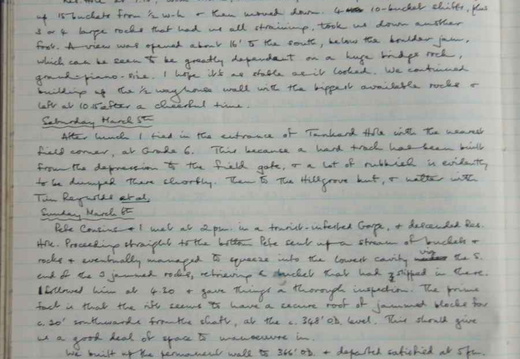 up 15 buckets from ½ w.h. & then moved down. 10-bucket shifts, plus
3 or 4 large rocks that had us all straining, took us down another
foot. A view was opened about 16' to the south, below the boulder jam,
which can be seen to be greatly dependant on a huge bridge rock,
grand-piano-size. I hope it's as stable as it looked. We continued
building up the ½ way house wall with the biggest available rocks &
left at 10.15 after a cheerful time.
Saturday March 5th
After lunch I tied in the entrance of Tankard Hole with the nearest
field corner, at Grade 6. This because a hard track has been built
from the depression to the field gate, & a lot of rubbish is evidently
to be dumped there shortly. Then to the Hillgrove hut, & natter with
Tim Reynolds et al.
Sunday March 6th
Pete Cousins & I met at 2 p.m. in a tourist-infested Gorge, & descended Res.
Hole. Proceeding straight to the bottom Pete sent up a stream of buckets &
rocks & eventually managed to squeeze into the lowest cavity the S.
end of the 3 jammed rocks, retrieving a bucket that had slipped in there.
I followed him at 4.20 & gave things a thorough inspection. The prime
fact is that the rift seems to have a secure roof of jammed blocks for
c. 20' southwards from the shaft, at the c. 348' OD level. This should give
us a good deal of space to manoeuvre in.
We built up the permanent wall to 366' OD. & departed satisfied at